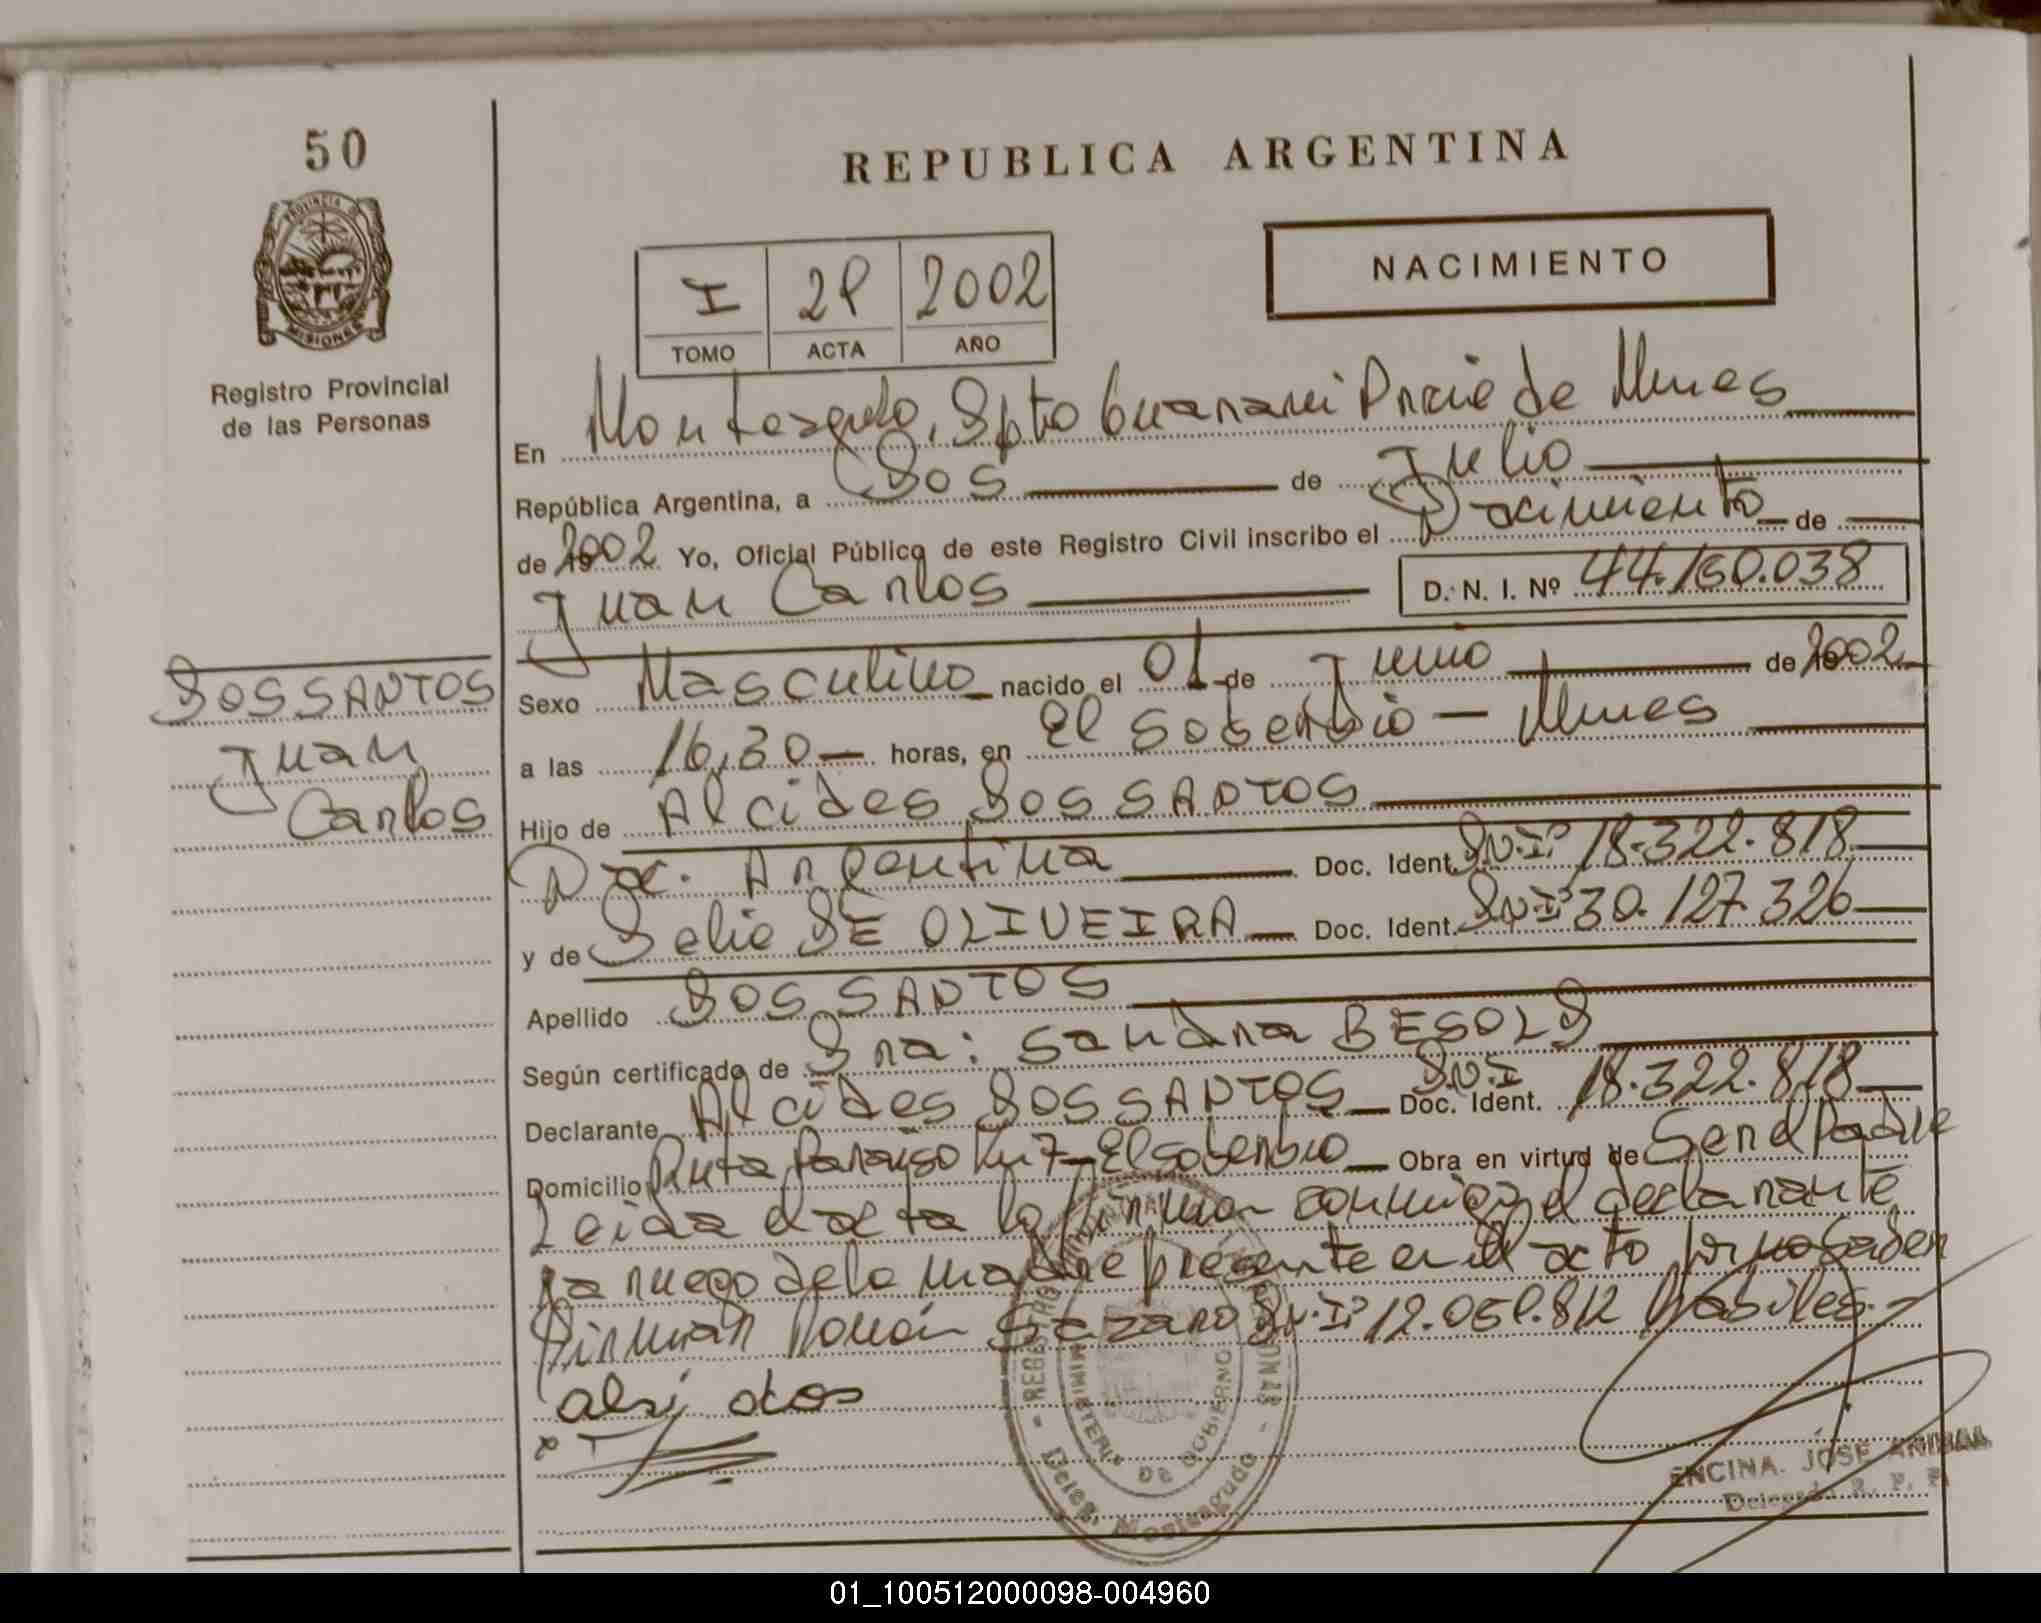 50
REPUBLICA ARGENTINA
PROVINCIA DE
MISIONES
Registro Provincial
de las Personas
NACIMIENTO
I 29 2002
TOMO ACTA AÑO
En Monteagudo, Dpto Guaraní Prcia de Mnes
República Argentina, a Dos de Julio
de 2002 Yo, Oficial Público de este Registro Civil inscribo el Nacimiento de
Juan Carlos D. N. I. Nº 44.150.038
DOS SANTOS
Juan
Carlos
Sexo Masculino nacido el 01 de Junio de 2002
a las 16,30 horas, en El Soberbio - Mnes
Hijo de Alcides DOS SANTOS
Nac. Argentina Doc. Ident. D.N.I. 18.322.818
y de Delia DE OLIVEIRA Doc. Ident. D.N.I. 30.127.326
Apellido DOS SANTOS
Según certificado de Dra: Sandra BESOLD
Declarante Alcides DOS SANTOS D.N.I Doc. Ident. 18.322.818
Domicilio Ruta Paraiso Km 7 El Soberbio Obra en virtud de Ser el Padre
Leida el acta la firman conmigo el declarante
a ruego de la madre presente en el acto por no saber
firmar Ramón D.N.I. 12.059.812 habiles.
alsi dos
REGISTRO PROVINCIAL DE LAS PERSONAS
MINISTERIO DE GOBIERNO
Deleg. Monteagudo
ENCINA JOSE ANIBAL
Delegado R. P. P.
01_100512000098-004960